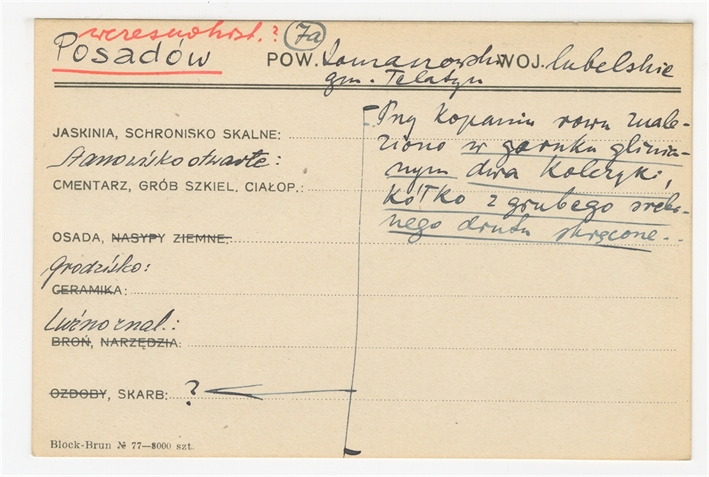 wczesnohist.? 7a
Posadów POW. Tomaszowski WOJ. lubelskie
gm. Telatyn
Przy kopaniu rowu znale-
ziono w garnku glinia-
nym dwa kolczyki,
kółko z grubego srebr-
nego drutu skręcone.
JASKINIA, SCHRONISKO SKALNE:
Stanowisko otwarte:
CMENTARZ, GRÓB SZKIEL. CIAŁOP.:
OSADA, NASYPY ZIEMNE:
Grodzisko:
CERAMIKA:
Luźno znal.:
BROŃ, NARZĘDZIA:
OZDOBY, SKARB: ?
Block-Brun № 77—8000 szt.